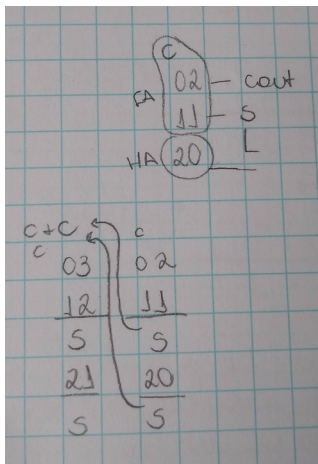 C
FA 02 - Cout
11 - S
HA 20 L
C + C c
c 03 02
12 11
S S
21 20
S S